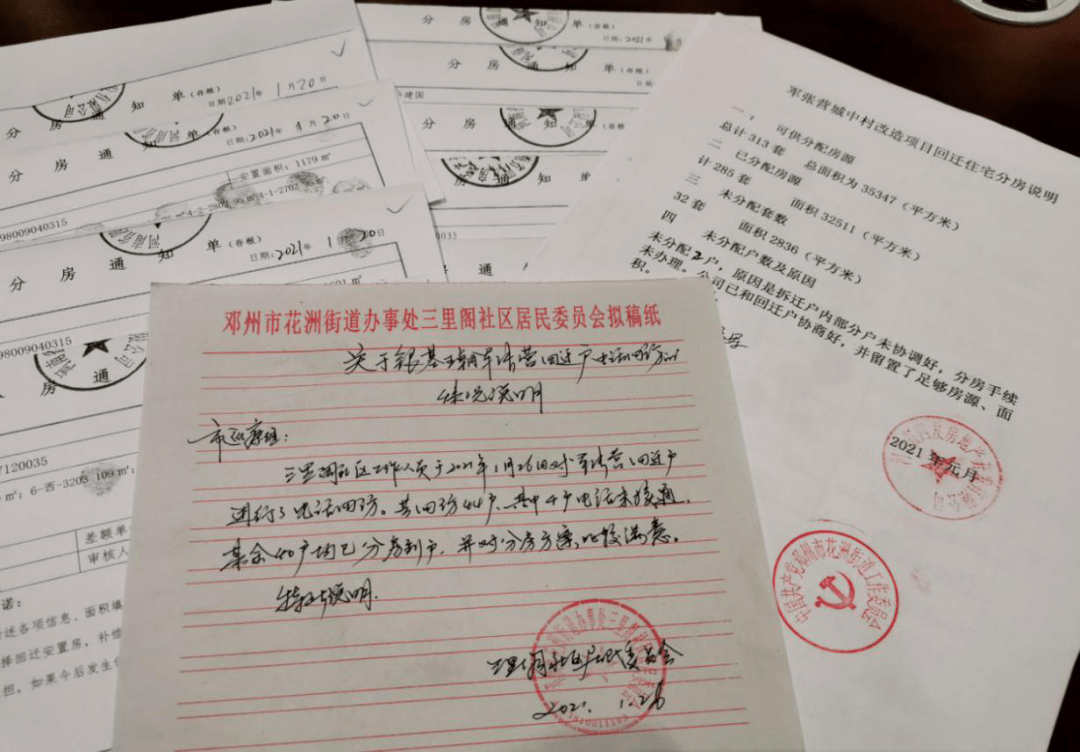 分 房 通 知 单（存根）
日期：2021年 1月20日
分 房 通 知 单（存根）
日期：2021年 1月20日
安置面积：1179㎡
98009040315
分 房 通 知 单（存根）
日期：2021年 1月20日
98009040315
分 通
通
67120035
㎡；6-西-3203 109㎡；
差额单
审核人
诺：
述各项信息、面积填
择回迁安置房，补偿
担，如果今后发生
知 单（存根）
日期：2021年
分 单（存根）
分 房 通 知 单（存根）
分 房 单（存根）
分 房 通
军张营城中村改造项目回迁住宅分房说明
一、 可供分配房源
总计313套 总面积为35347（平方米）
二 已分配房源
计285套 面积32511（平方米）
三 未分配套数
32套 面积2836（平方米）
四 未分配户数及原因
未分配2户，原因是拆迁户内部分户未协调好，分房手续
未办理。公司已和回迁户协商好，并留置了足够房源、面
积。
2021年元月
中国共产党邓州市花洲街道工作委员会
邓州市花洲街道办事处三里阁社区居民委员会拟稿纸
关于银基王朝军张营回迁户电话回访的
情况说明
市巡察组：
三里阁社区工作人员于2021年1月26日对军张营回迁户
进行了电话回访。共回访44户，其中4户电话未接通，
其余40户均已分房到户，并对分房方案比较满意。
特此说明.
三里阁社区居民委员会
2021.1.26